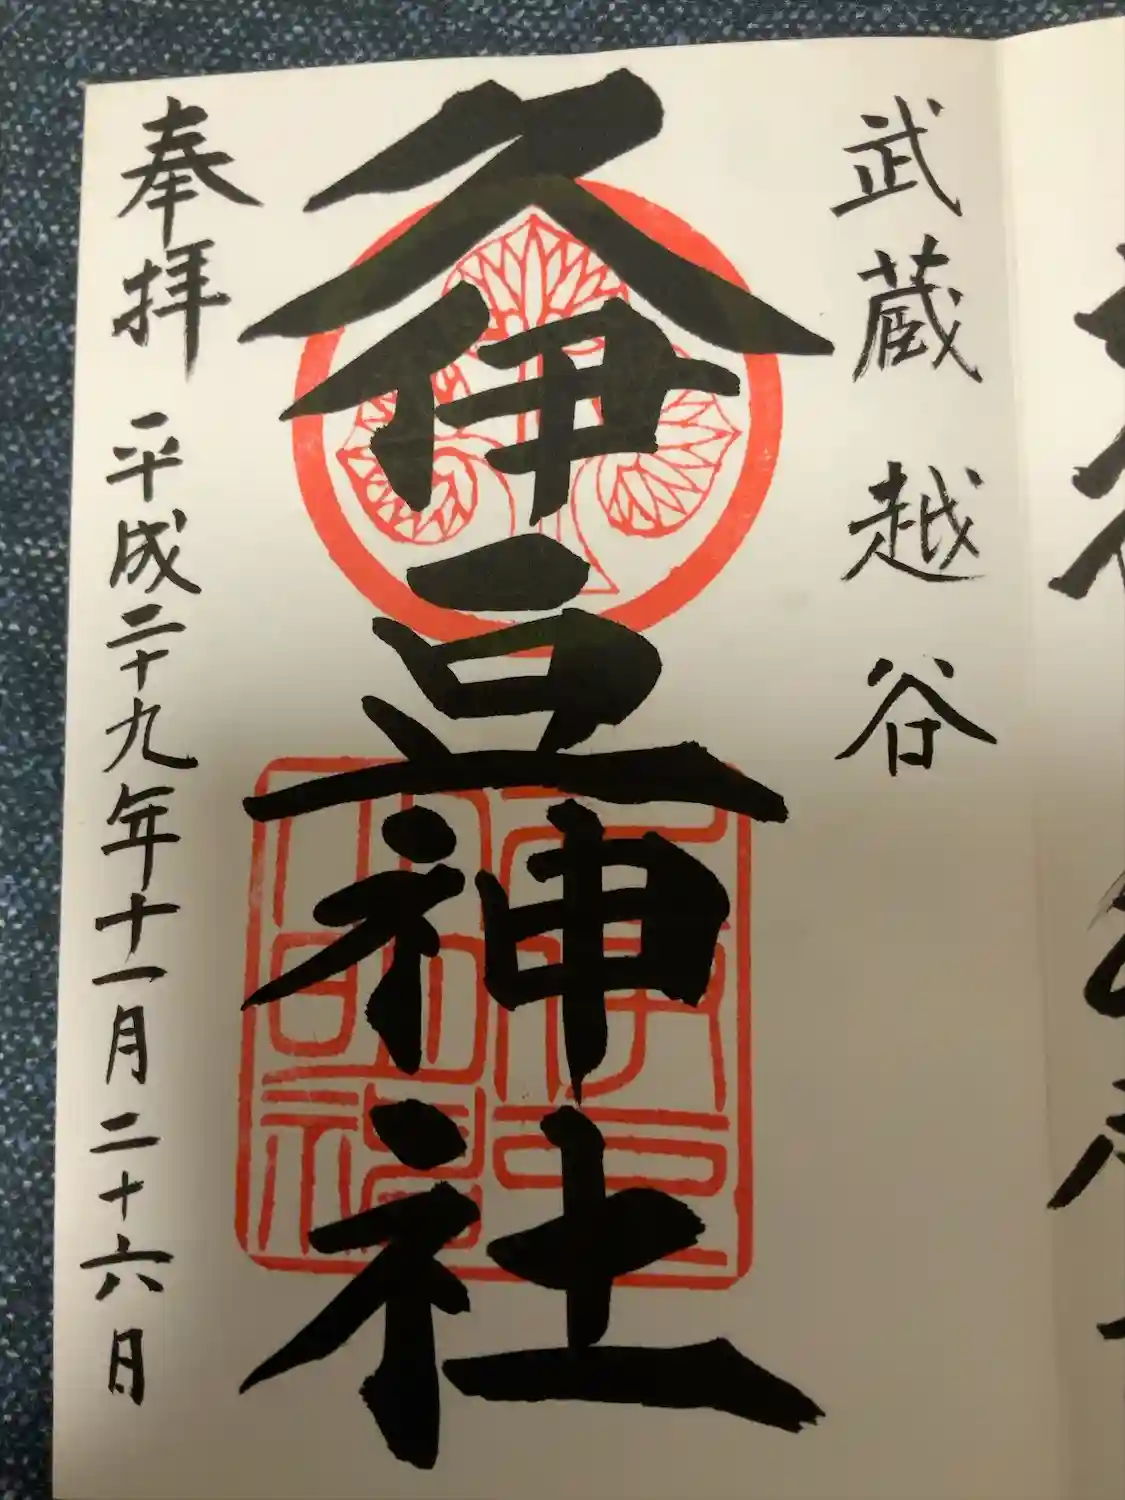 武蔵越谷
久伊豆神社
奉拝
平成二十九年十一月二十六日